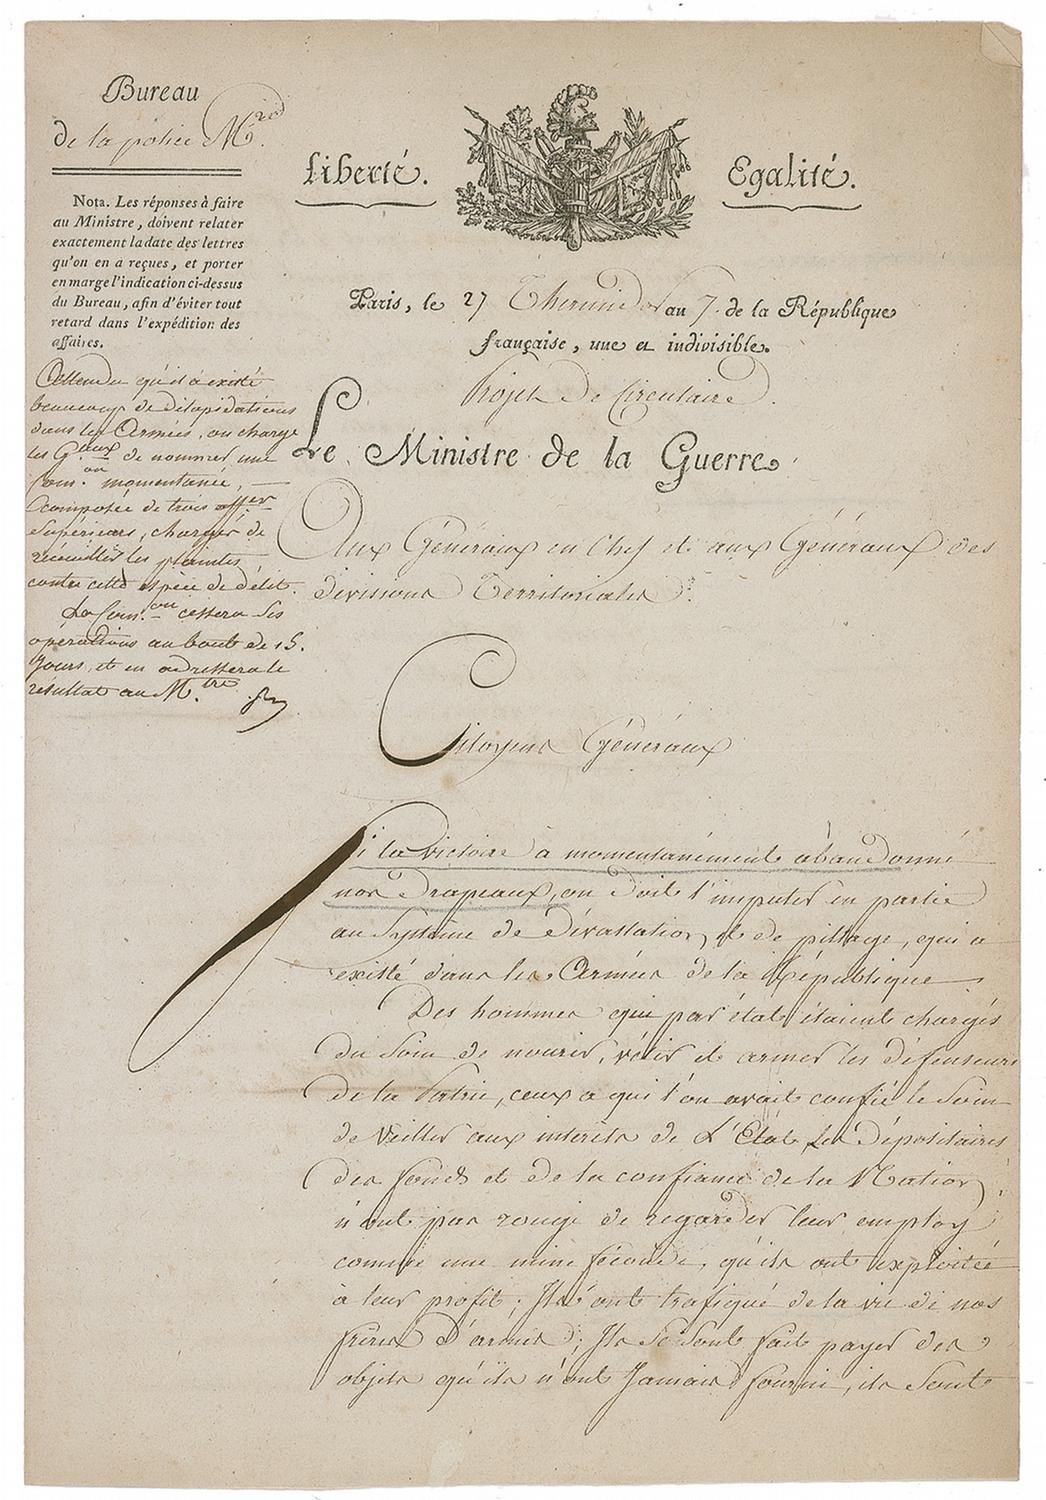 Bureau
de la police M.re
Nota. Les réponses à faire
au Ministre, doivent relater
exactement la date des lettres
qu'on en a reçues, et porter
en marge l'indication ci-dessus
du Bureau, afin d'éviter tout
retard dans l'expédition des
affaires.
Attendu qu'il a existé
beaucoup de dilapidations
dans les Armées, on charge
les G.aux de nommer une
Com.on momentanée,
composée de trois off.ers
Supérieurs, chargés de
récueillir les plaintes
contre cette espèce de délit.
La Com.on cessera ses
opérations au bout de 15.
Jours, et en adressera le
résultat au M.tre
Liberté.
Egalité.
Paris, le 27 Thermidor an 7. de la République
française, une et indivisible.
Projet de Circulaire.
Le Ministre de la Guerre,
Aux Généraux en Chef et aux Généraux des
divisions Territoriales.
Citoyens Généraux
Si la Victoire a momentanément abandonné
nos Drapeaux, on doit l'imputer en partie
au Système de dévastation, et de pillage, qui a
existé dans les Armées de la République.
Des hommes qui par état étaient chargés
du Soin de nourir, vétir et armer les défenseurs
de la Patrie, ceux a qui l'on avait confié le Soin
de Veiller aux interets de L'Etat, les dépositaires
des fonds et de la confiance de la Nation,
n'ont pas rougi de regarder leur employ
comme une mine féconde, qu'ils ont exploitée
à leur profit; Ils ont trafiqué de la vie de nos
frères D'armes; Ils Se Sont fait payer des
objets qu'ils n'ont Jamais fourni, ils Sont